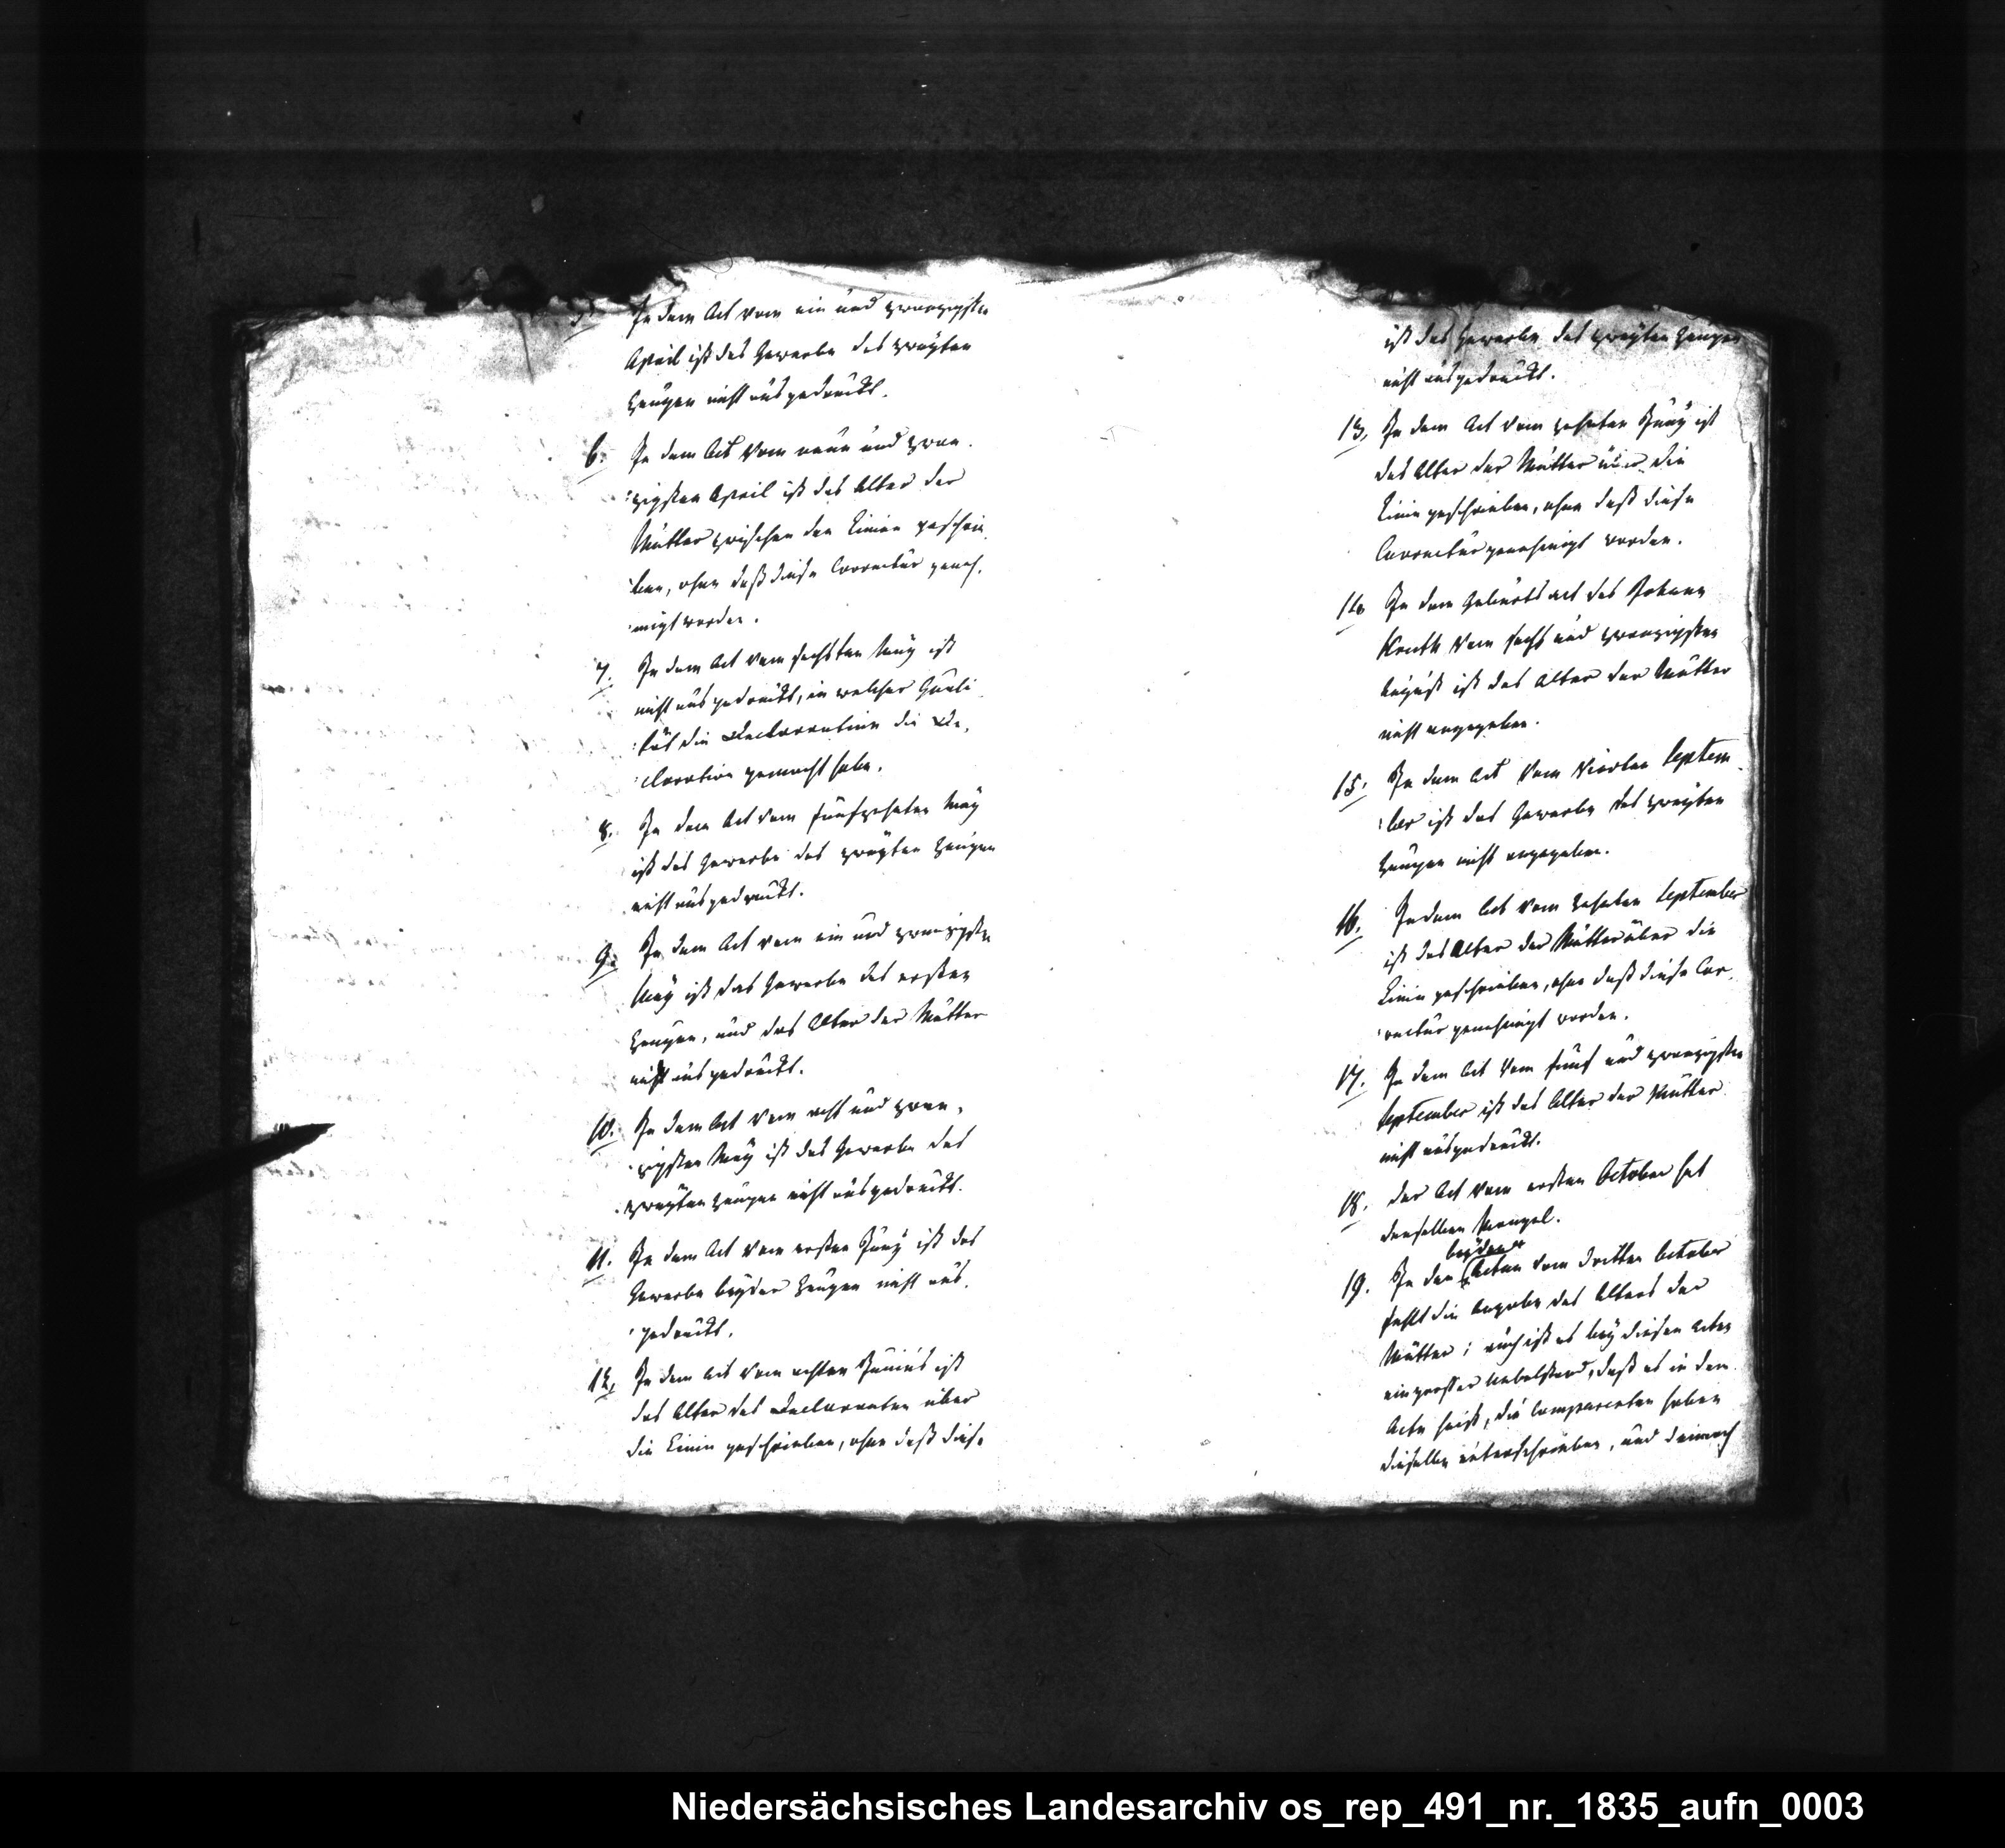 5. In dem Act vom ein und zwanzigsten
April ist das Gewerbe des zweyten
Zeugen nicht ausgedruckt.
6. In dem Act vom neun und zwan
zigsten April ist das Alter der
Mutter zwischen den Linien geschrie
ben, ohne daß diese Correctur geneh
migt worden.
7. In dem Act vom sechsten May ist
nicht ausgedruckt, in welcher Quali
tät die Declarantinn die De
claration gemacht habe.
8. In dem Act vom fünfzehnten May
ist das Gewerbe des zweyten Zeugen
nicht ausgedruckt.
9. In dem Act vom ein und zwanzigsten
May ist das Gewerbe des ersten
Zeugen, und das Alter der Mutter
nicht ausgedruckt.
10. In dem Act vom acht und zwan
zigsten May ist das Gewerbe des
zweyten Zeugen nicht ausgedruckt.
11. In dem Act vom ersten Juny ist das
Gewerbe beyder Zeugen nicht aus
gedruckt.
12. In dem Act vom achten Junius ist
das Alter des Declaranten über
die Linie geschrieben, ohne daß diese
ist das Gewerbe des zweyten Zeugen
nicht ausgedruckt.
13. In dem Act vom zehnten Juny ist
das Alter der Mutter über die
Linie geschrieben, ohne daß diese
Correctur genehmigt worden.
14. In dem Geburtsact des Johann
vom sechs und zwanzigsten
August ist das Alter der Mutter
nicht angegeben.
15. In dem Act vom vierten Septem
ber ist das Gewerbe des zweyten
Zeugen nicht angegeben.
16. In dem Act vom zehnten September
ist das Alter der Mutter über die
Linie geschrieben, ohne daß diese Cor
rectur genehmigt worden.
17. In dem Act vom fünf und zwanzigsten
September ist das Alter der Mutter
nicht ausgedruckt.
18. der Act vom ersten October hat
denselben Mangel.
beyden
19. In den Acten vom dritten October
fehlt die Angabe des Alters der
Mutter; auch ist es bey diesen Acten
ein grosser Uebelstand, daß es in dem
Acte heist, die Comparenten haben
dieselben unterschrieben, und dennoch
Niedersächsisches Landesarchiv os_rep_491_nr._1835_aufn_0003